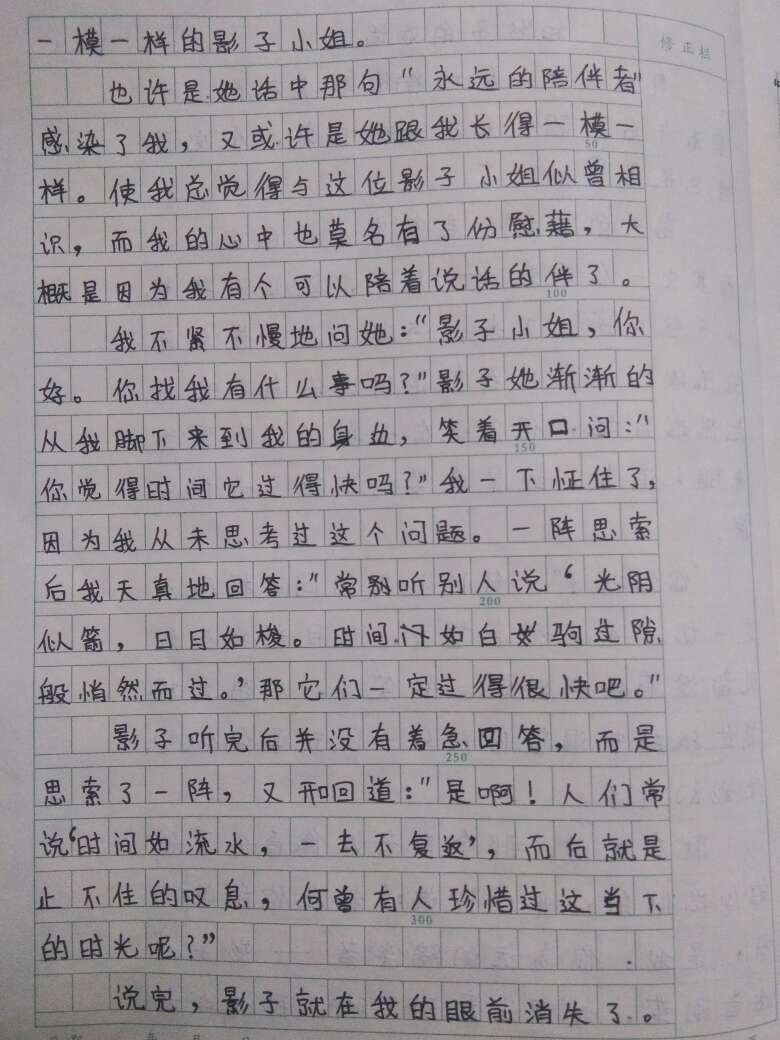 一模一样的影子小姐。
修正栏
也许是她话中那句“永远的陪伴者”
感染了我，又或许是她跟我长得一模一
50
样。使我总觉得与这位影子小姐似曾相
识，而我的心中也莫名有了份慰藉，大
概是因为我有个可以陪着说话的伴了。
100
我不紧不慢地问她：“影子小姐，你
好。你找我有什么事吗？”影子她渐渐的
从我脚下来到我的身边，笑着开口问：“
150
你觉得时间它过得快吗？”我一下怔住了，
因为我从未思考过这个问题。一阵思索
后我天真地回答：“常别听别人说‘光阴
200
似箭，日月如梭。时间如白驹过隙
般悄然而过。’那它们一定过得很快吧。”
影子听完后并没有着急回答，而是
250
思索了一阵，又和回道：“是啊！人们常
说‘时间如流水，一去不复返’，而后就是
止不住的叹息，何曾有人珍惜过这当下
300
的时光呢？”
说完，影子就在我的眼前消失了。